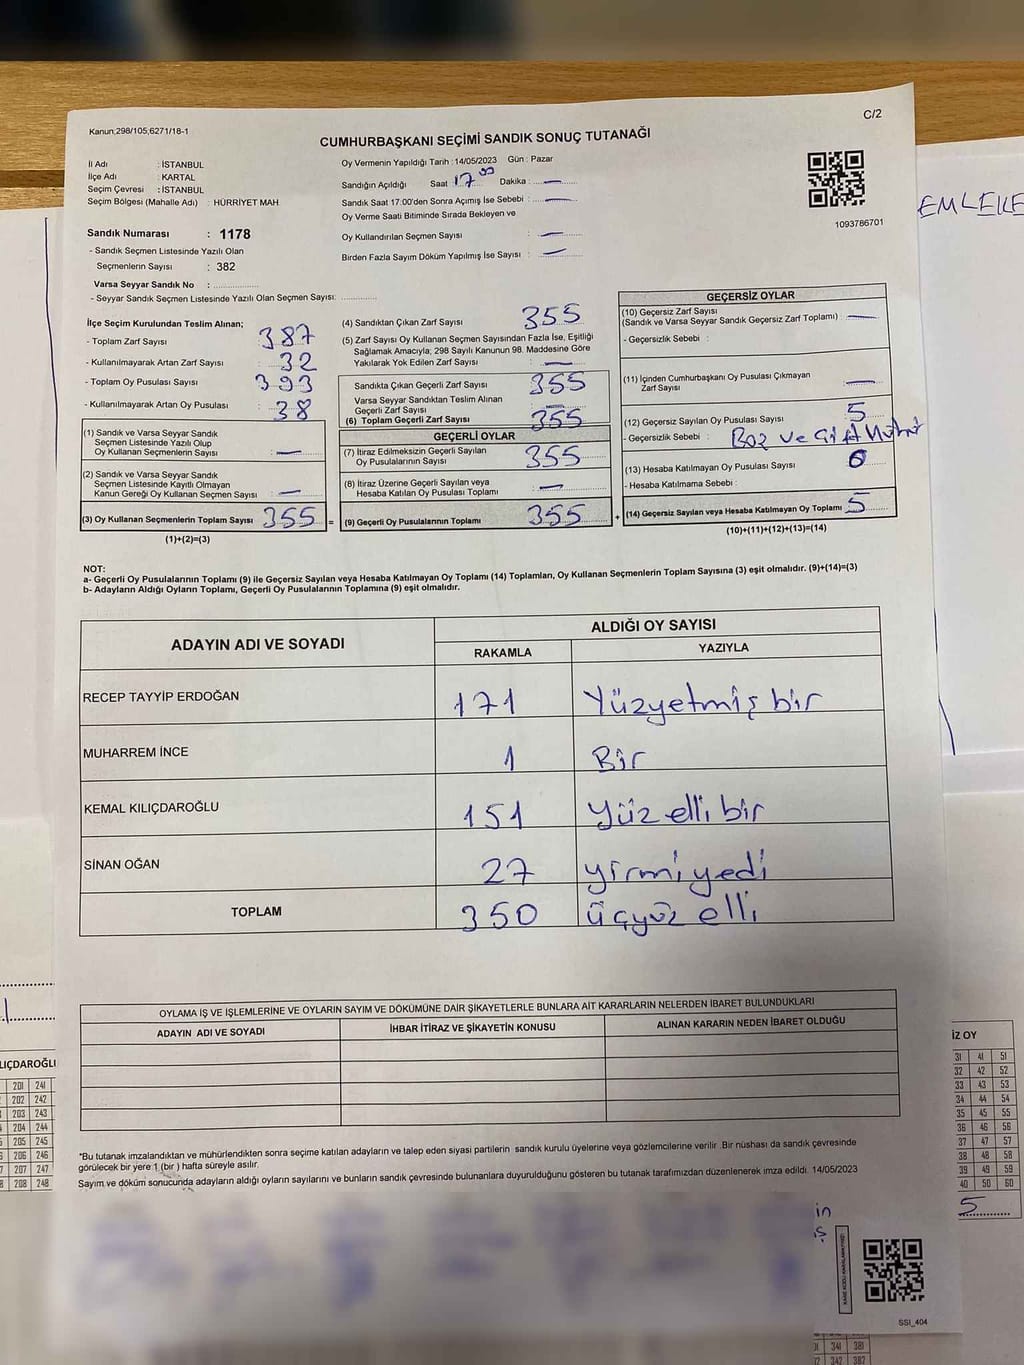 C/2
Kanun;298/105,6271/18-1
CUMHURBAŞKANI SEÇİMİ SANDIK SONUÇ TUTANAĞI
İl Adı : İSTANBUL
İlçe Adı : KARTAL
Seçim Çevresi : İSTANBUL
Seçim Bölgesi (Mahalle Adı) : HÜRRİYET MAH
Sandık Numarası : 1178
- Sandık Seçmen Listesinde Yazılı Olan
Seçmenlerin Sayısı : 382
Varsa Seyyar Sandık No : ..............
- Seyyar Sandık Seçmen Listesinde Yazılı Olan Seçmen Sayısı: ............
Oy Vermenin Yapıldığı Tarih : 14/05/2023 Gün : Pazar
Sandığın Açıldığı Saat 17 00 Dakika : —
Sandık Saat 17:00'den Sonra Açımış İse Sebebi : —
Oy Verme Saati Bitiminde Sırada Bekleyen ve
Oy Kullandırılan Seçmen Sayısı : —
Birden Fazla Sayım Döküm Yapılmış İse Sayısı : —
1093786701
EMLEKE
İlçe Seçim Kurulundan Teslim Alınan;
- Toplam Zarf Sayısı : 387
- Kullanılmayarak Artan Zarf Sayısı : 32
- Toplam Oy Pusulası Sayısı : 393
- Kullanılmayarak Artan Oy Pusulası : 38
(1) Sandık ve Varsa Seyyar Sandık
Seçmen Listesinde Yazılı Olup
Oy Kullanan Seçmenlerin Sayısı : —
(2) Sandık ve Varsa Seyyar Sandık
Seçmen Listesinde Kayıtlı Olmayan
Kanun Gereği Oy Kullanan Seçmen Sayısı : —
(3) Oy Kullanan Seçmenlerin Toplam Sayısı 355 =
(1)+(2)=(3)
(4) Sandıktan Çıkan Zarf Sayısı 355
(5) Zarf Sayısı Oy Kullanan Seçmen Sayısından Fazla İse, Eşitliği
Sağlamak Amacıyla; 298 Sayılı Kanunun 98. Maddesine Göre
Yakılarak Yok Edilen Zarf Sayısı : —
Sandıkta Çıkan Geçerli Zarf Sayısı 355
Varsa Seyyar Sandıktan Teslim Alınan
Geçerli Zarf Sayısı
(6) Toplam Geçerli Zarf Sayısı 355
GEÇERLİ OYLAR
(7) İtiraz Edilmeksizin Geçerli Sayılan
Oy Pusulalarının Sayısı 355
(8) İtiraz Üzerine Geçerli Sayılan veya
Hesaba Katılan Oy Pusulası Toplamı —
(9) Geçerli Oy Pusulalarının Toplamı 355 +
GEÇERSİZ OYLAR
(10) Geçersiz Zarf Sayısı
(Sandık ve Varsa Seyyar Sandık Geçersiz Zarf Toplamı) : —
- Geçersizlik Sebebi :
(11) İçinden Cumhurbaşkanı Oy Pusulası Çıkmayan
Zarf Sayısı —
(12) Geçersiz Sayılan Oy Pusulası Sayısı 5
- Geçersizlik Sebebi : Boz ve Çift
(13) Hesaba Katılmayan Oy Pusulası Sayısı 0
- Hesaba Katılmama Sebebi :
(14) Geçersiz Sayılan veya Hesaba Katılmayan Oy Toplamı 5
(10)+(11)+(12)+(13)=(14)
NOT:
a- Geçerli Oy Pusulalarının Toplamı (9) ile Geçersiz Sayılan veya Hesaba Katılmayan Oy Toplamı (14) Toplamları, Oy Kullanan Seçmenlerin Toplam Sayısına (3) eşit olmalıdır. (9)+(14)=(3)
b- Adayların Aldığı Oyların Toplamı, Geçerli Oy Pusulalarının Toplamına (9) eşit olmalıdır.
ADAYIN ADI VE SOYADI ALDIĞI OY SAYISI
RAKAMLA YAZIYLA
RECEP TAYYİP ERDOĞAN 171 Yüzyetmiş bir
MUHARREM İNCE 1 Bir
KEMAL KILIÇDAROĞLU 151 Yüz elli bir
SİNAN OĞAN 27 yirmi yedi
TOPLAM 350 üçyüz elli
OYLAMA İŞ VE İŞLEMLERİNE VE OYLARIN SAYIM VE DÖKÜMÜNE DAİR ŞİKAYETLERLE BUNLARA AİT KARARLARIN NELERDEN İBARET BULUNDUKLARI
ADAYIN ADI VE SOYADI İHBAR İTİRAZ VE ŞİKAYETİN KONUSU ALINAN KARARIN NEDEN İBARET OLDUĞU
*Bu tutanak imzalandıktan ve mühürlendikten sonra seçime katılan adayların ve talep eden siyasi partilerin sandık kurulu üyelerine veya gözlemcilerine verilir .Bir nüshası da sandık çevresinde
görülecek bir yere 1 (bir ) hafta süreyle asılır.
Sayım ve döküm sonucunda adayların aldığı oyların sayılarını ve bunların sandık çevresinde bulunanlara duyurulduğunu gösteren bu tutanak tarafımızdan düzenlenerek imza edildi. 14/05/2023
SSI_404
LIÇDAROĞLI
201 241
202 242
203 243
204 244
205 245
206 246
207 247
208 248
İZ OY
31 41 51
32 42 52
33 43 53
34 44 54
35 45 55
36 46 56
37 47 57
38 48 58
39 49 59
40 50 60
5
341 381
342 382